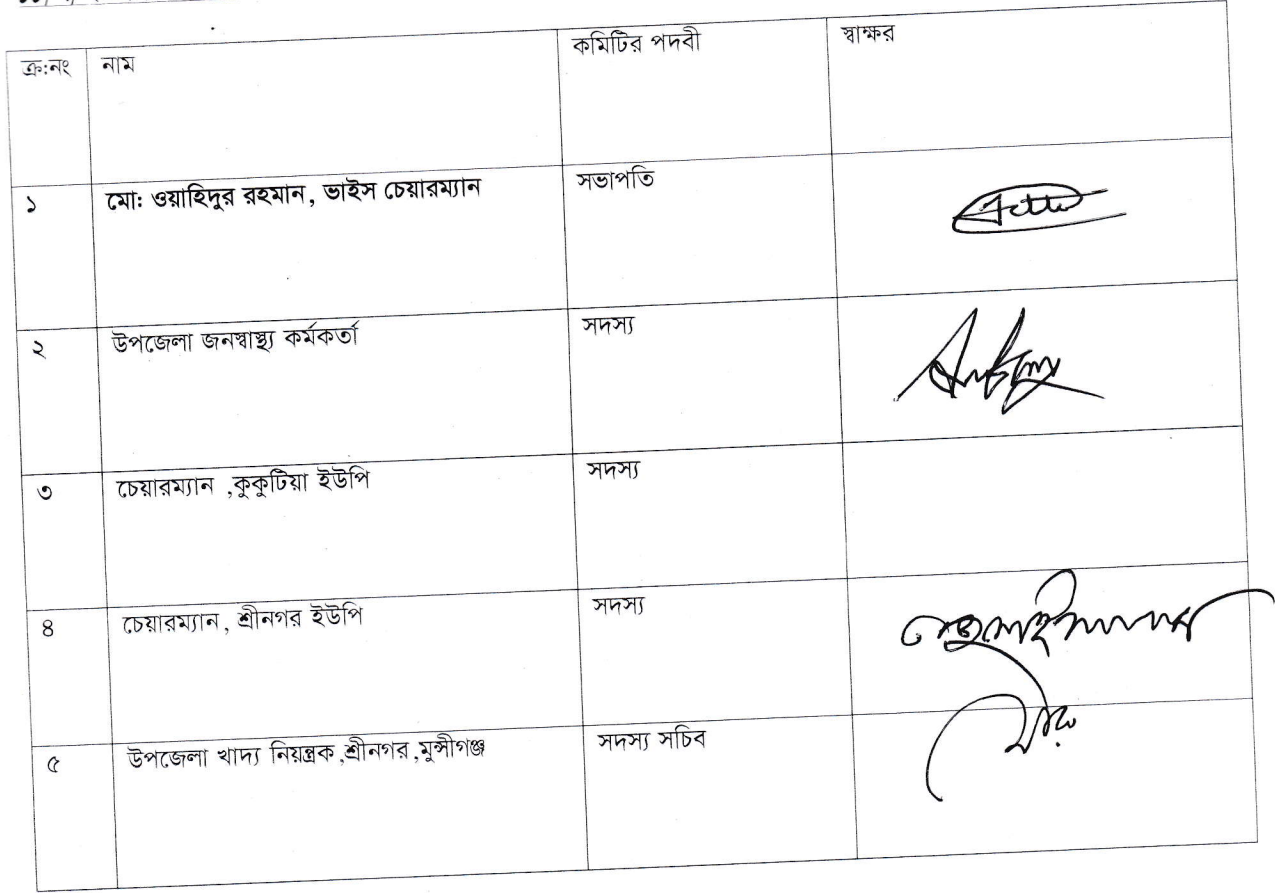 ক্র:নং নাম কমিটির পদবী স্বাক্ষর
১ মো: ওয়াহিদুর রহমান, ভাইস চেয়ারম্যান সভাপতি
২ উপজেলা জনস্বাস্থ্য কর্মকর্তা সদস্য
৩ চেয়ারম্যান ,কুকুটিয়া ইউপি সদস্য
৪ চেয়ারম্যান, শ্রীনগর ইউপি সদস্য
৫ উপজেলা খাদ্য নিয়ন্ত্রক,শ্রীনগর,মুন্সীগঞ্জ সদস্য সচিব